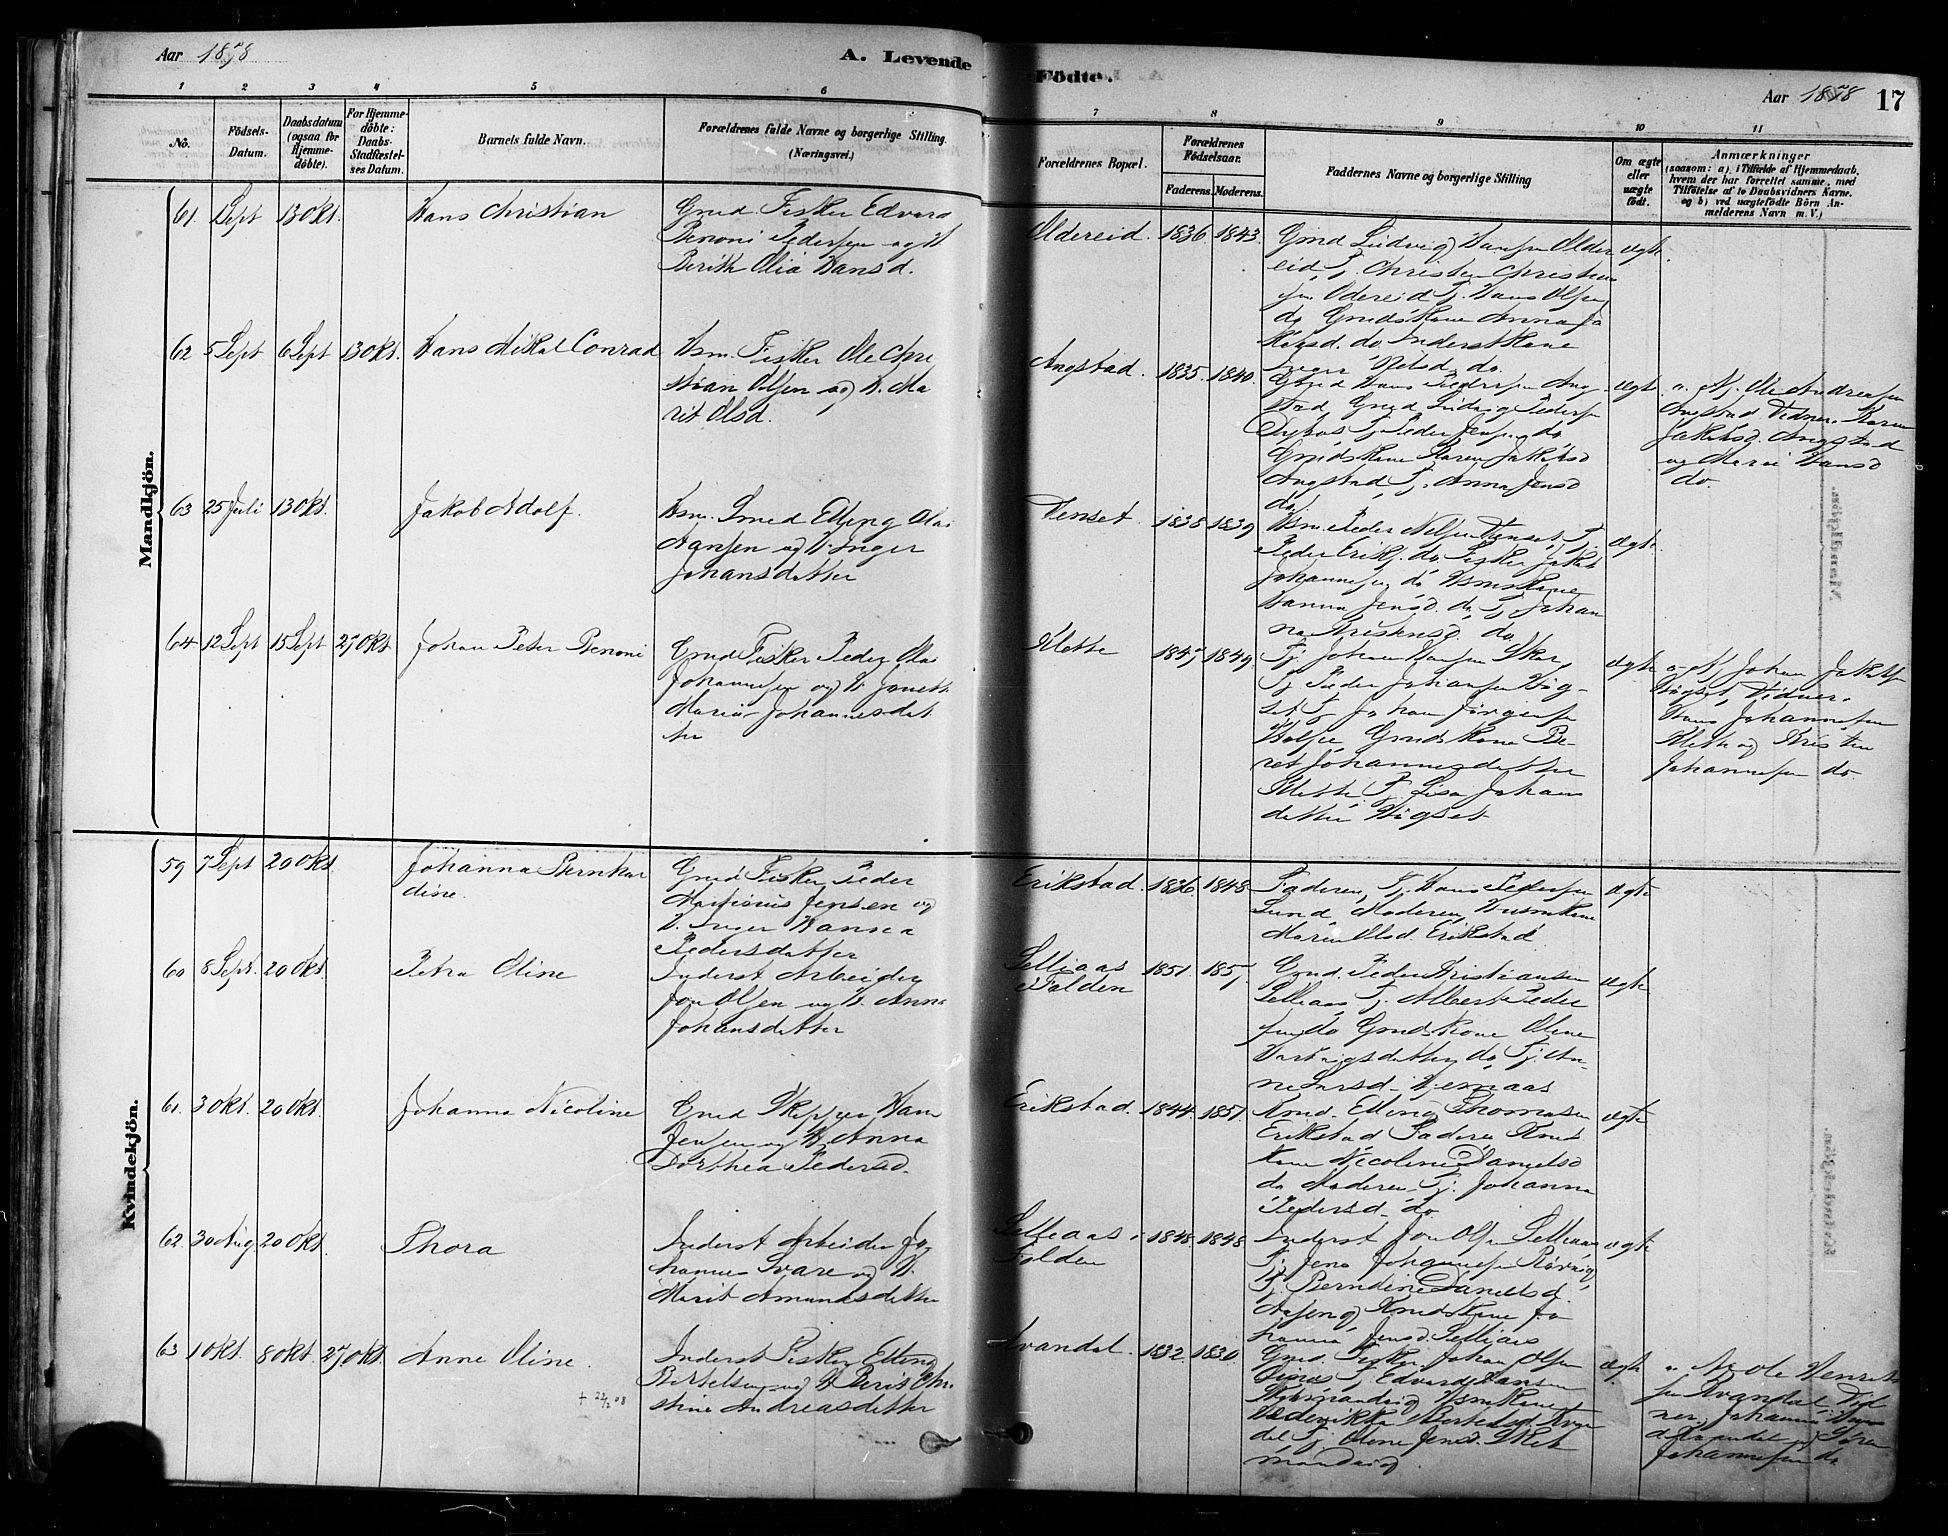 Aar 1878
A. Levende
Födte.
Aar 1878
17
1 2 3 4 5 6 7 8 9 10 11
No.
Födsels-
Datum.
Daabsdatum
(ogsaa for
Hjemme-
döbte).
For Hjemme-
döbte:
Daabs-
Stadfæstel-
ses Datum.
Barnets fulde Navn.
Forældrenes fulde Navne og borgerlige Stilling.
(Næringsvei.)
Forældrenes Bopæl.
Forældrenes
Födselsaar.
Faderens. Moderens.
Faddernes Navne og borgerlige Stilling
Om ægte
eller
uægte
födt.
Anmærkninger
(saasom: a) i Tilfælde af Hjemmedaab,
hvem der har forrettet samme, med
Tilföielse af to Daabsvidners Navne,
og b) ved uægtefödte Börn An-
melderens Navn m. V.)
Mandkjön.
61. Sept 13 Okt. Hans Christian
Gmd. Fisker Edvard
Benoni Pedersen og H.
Berith Olia Hansd.
Oldereid. 1836 1843.
Gmd Ludvig Hansen Older
eid, Tj. Christen Christian
Hans Olsen
do Gmds Kone Anna
do Inderst Kone
Nilsd. do.
ægte.
62 5 Sept 6 Sept 13 Okt. Hans Mikal Conrad
Hsm. Fisker Ole Chri
stian Olsen og H. Ma
rit Olsd.
Angstad. 1835. 1840.
Gmd Hans Pedersen Ang
stad, Gmd Ludvig Peders
Tj Peder Jensen do
Gmds Kone Karen Jakobsd
Angstad, Tj. Anna Jensd
do.
ægte
a. Af Ole Andreasen
Angstad Vidner. Karen
Jakobsd. Angstad
og Marie Hansd
do.
63 25 Juli 13 Okt. Jakob Adolf.
Hsm. Smed Elling Olai
Hansen og H. Inger
Johansdatter
Venset. 1838 1839
Hsm. Peder Nilsen Venset, Tj
Peder Eriks. do. Fisker Jakob
Johannesen do Hsmds Kone
Hanna Jensd. do, Tj. Johan
na Kristensd. do.
ægte.
64 12 Sept 15 Sept 27 Okt Johan Peter Benoni
Gmd Fisker Peder Olai
Johannesen og H. Janette
Maria Johannesdat
ter
Klette 1845, 1849.
Tj. Johan Hansen Skar,
Tj Peder Johansen Høg-
set, Tj Johan Jørgensen
Gmds Kone Be-
ret Johannesdatter
Klette. Tj. Lisa Johans
datter Høgset
ægte
a. Af Johan Jakobsen
Høgset, Vidner.
Hans Johannesen
Klette og Kristen
Johannesen do.
Kvindekjön.
59 7 Sept 20 Okt. Johanna Bernhar
dine.
Gmd. Fisker Peder
Martinus Jensen og
H. Inger Hansea
Pedersdatter
Erikstad. 1836. 1848.
Faderen, Tj. Hans Pedersen
Lund, Moderen, Husmkone
Maren Olsd. Erikstad.
ægte
60 8 Sept. 20 Okt. Petra Oline
Inderst Arbeider
Jon Olsen og H. Anna
Johansdatter
Selliaas
i Folden 1851. 185,
Gmd. Peder Kristiansen
Selliaas Tj. Albert Peder
sen do Gmds Kone Oline
Hartvigsdatter do, Tj. An-
ne Larsd.
ægte
61. 3 Okt. 20 Okt. Johanna Nicoline
Gmd Skipper Hans
Jensen og H. Anna
Dorthea Pedersd.
Erikstad. 1844. 1851.
Gmd. Elling Thomasen
Erikstad Faderen Gmds
Kone Nicoline Danielsd
do Moderen, Tj. Johanna
Pedersd. do.
ægte
62. 30 Aug 20 Okt. Thora
Inderst Arbeider Jo
hannes Svare og H.
Marit Amundsdatter
Selliaas i
Folden 1848. 1848
Inderst Jon Olsen Selliaas
Tj. Jens Johannesen Rørvig,
Tj. Berndine Danielsd.
Gmds Kone Jo
hanna Jensd. Selliaas
ægte
63 1 Okt. 8 Okt. 27 Okt. Anne Oline.
Inderst Fisker Elling
Bertelsen og H. Berit Chri
stine Andreasdatter
+ 22/2 08
Kvandal. 1832. 1830.
Gmd. Fisker Johan Olsen
Tj. Edvard Hansen
Hsmkone
Bertelsd. Kvan
dal Tj. Oline Jensd.
ægte
a. Af Ole Henrik
sen Kvandal Vid
ner, Johanna
Kvandal og
Johannesen do.